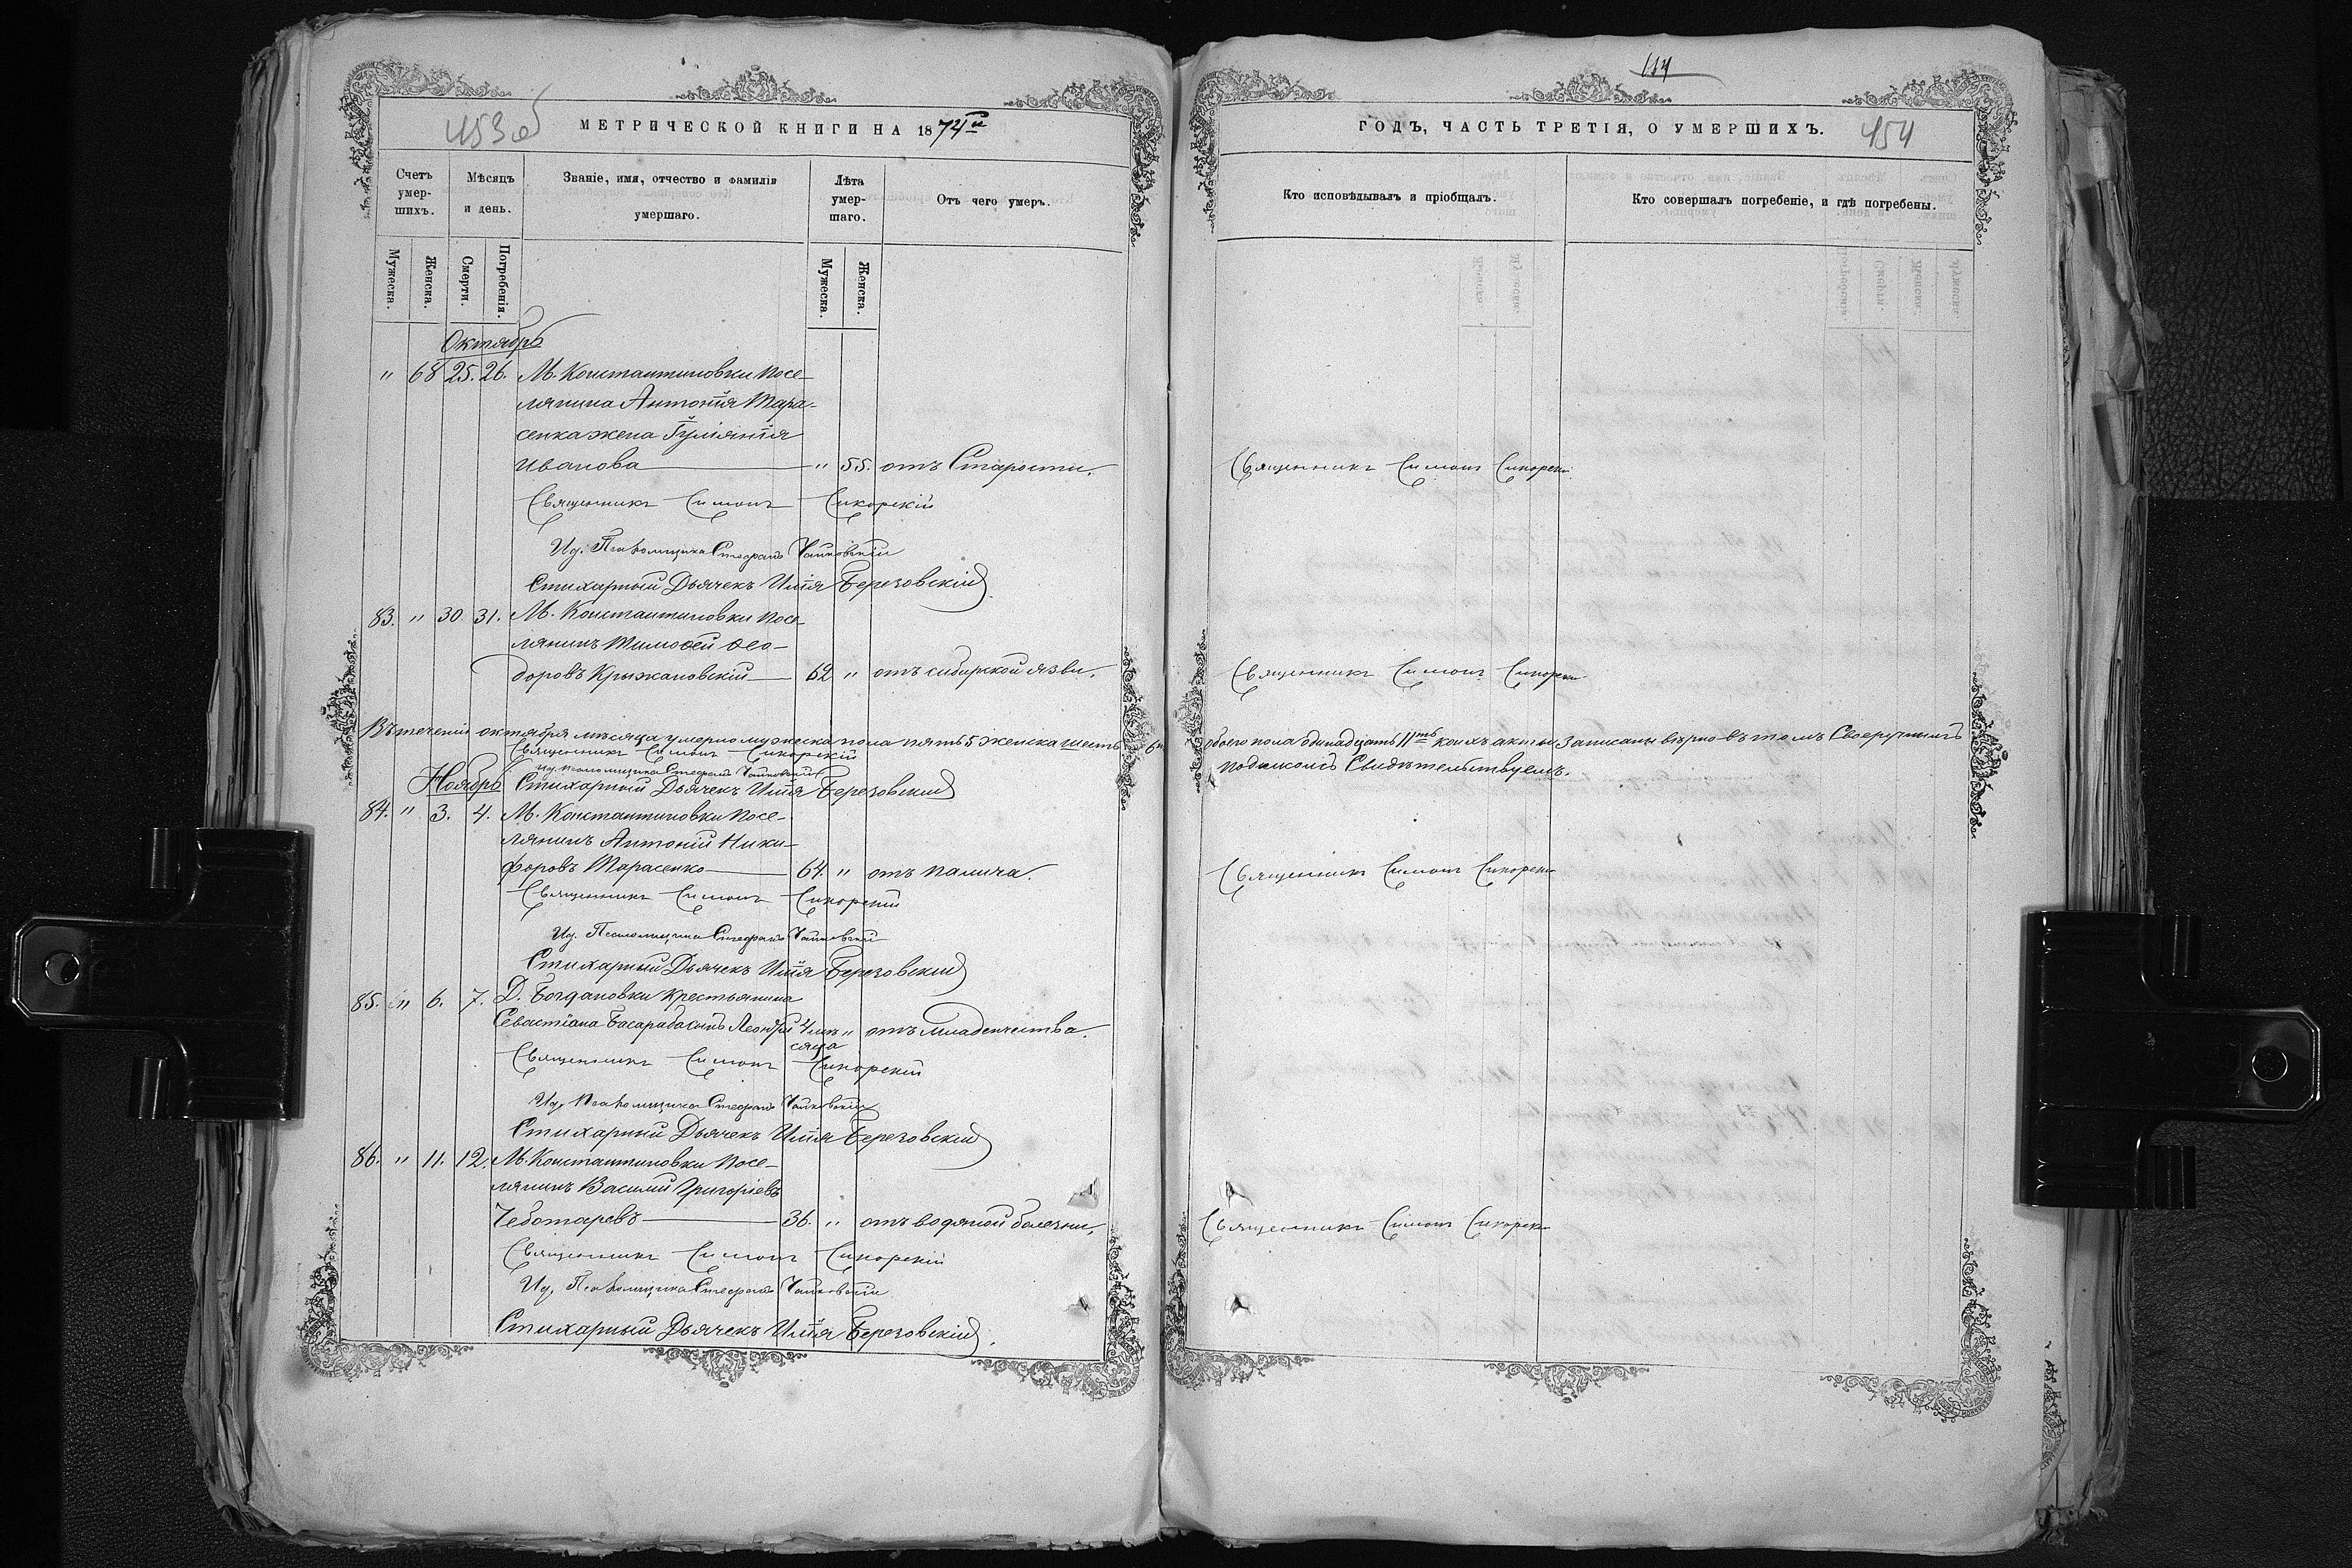 453об
МЕТРИЧЕСКОЙ КНИГИ НА 1874й
Счетъ умершихъ.
Мѣсяцъ и день.
Званіе, имя, отчество и фамилія умершаго.
Лѣта умершаго.
Отъ чего умеръ.
Мужеска.
Женска.
Смерти.
Погребенія.
Мужеска.
Женска.
Октябрь
" 68 25. 26. М. Константиновки посе-
лянина Антонія Тара-
сенка жена Іуліянія
Иванова " 55. отъ Старости.
Священникъ Симонъ Сикорскій
Ид. Псаломщика Стефанъ Чайковскій
Стихарный Дьячекъ Илія Березовскій
83. " 30. 31. М. Константиновки посе-
лянинъ Тимоѳей Ѳео-
доровъ Крыжановскій 62 " отъ сибирской язвы.
Въ теченіи октября мѣсяца умерло мужеска пола пять 5 женска шесть 6ть
Священникъ Симонъ Сикорскій
Ид. Псаломщика Стефанъ Чайковскій
Ноябрь Стихарный Дьячекъ Илія Березовскій
84. " 3. 4. М. Константиновки посе-
лянинъ Антоній Ники-
форовъ Тарасенко 64. " отъ палича.
Священникъ Симонъ Сикорскій
Ид. Псаломщика Стефанъ Чайковскій
Стихарный Дьячекъ Илія Березовскій
85. " 6. 7. Д. Богдановки крестьянина
Севастіана Басараба сынъ 4 мѣ- " отъ младенчества.
сяца
Священникъ Симонъ Сикорскій
Ид. Псаломщика Стефанъ Чайковскій
Стихарный Дьячекъ Илія Березовскій
86. " 11. 12. М. Константиновки посе-
лянинъ Василій Григоріевъ
Чеботаревъ 36. " отъ водяной болезни.
Священникъ Симонъ Сикорскій
Ид. Псаломщика Стефанъ Чайковскій
Стихарный Дьячекъ Илія Березовскій.
454
ГОДЪ, ЧАСТЬ ТРЕТІЯ, О УМЕРШИХЪ.
Кто исповѣдывалъ и пріобщалъ.
Кто совершалъ погребеніе, и гдѣ погребены.
Священникъ Симонъ Сикорскі
Священникъ Симонъ Сикорскі
обоего пола одинадцать 11ть коихъ акты записаны вѣрно въ томъ Своеручнымъ
подпискомъ Свидѣтельствуемъ.
Священникъ Симонъ Сикорскі
Священникъ Симонъ Сикорскі